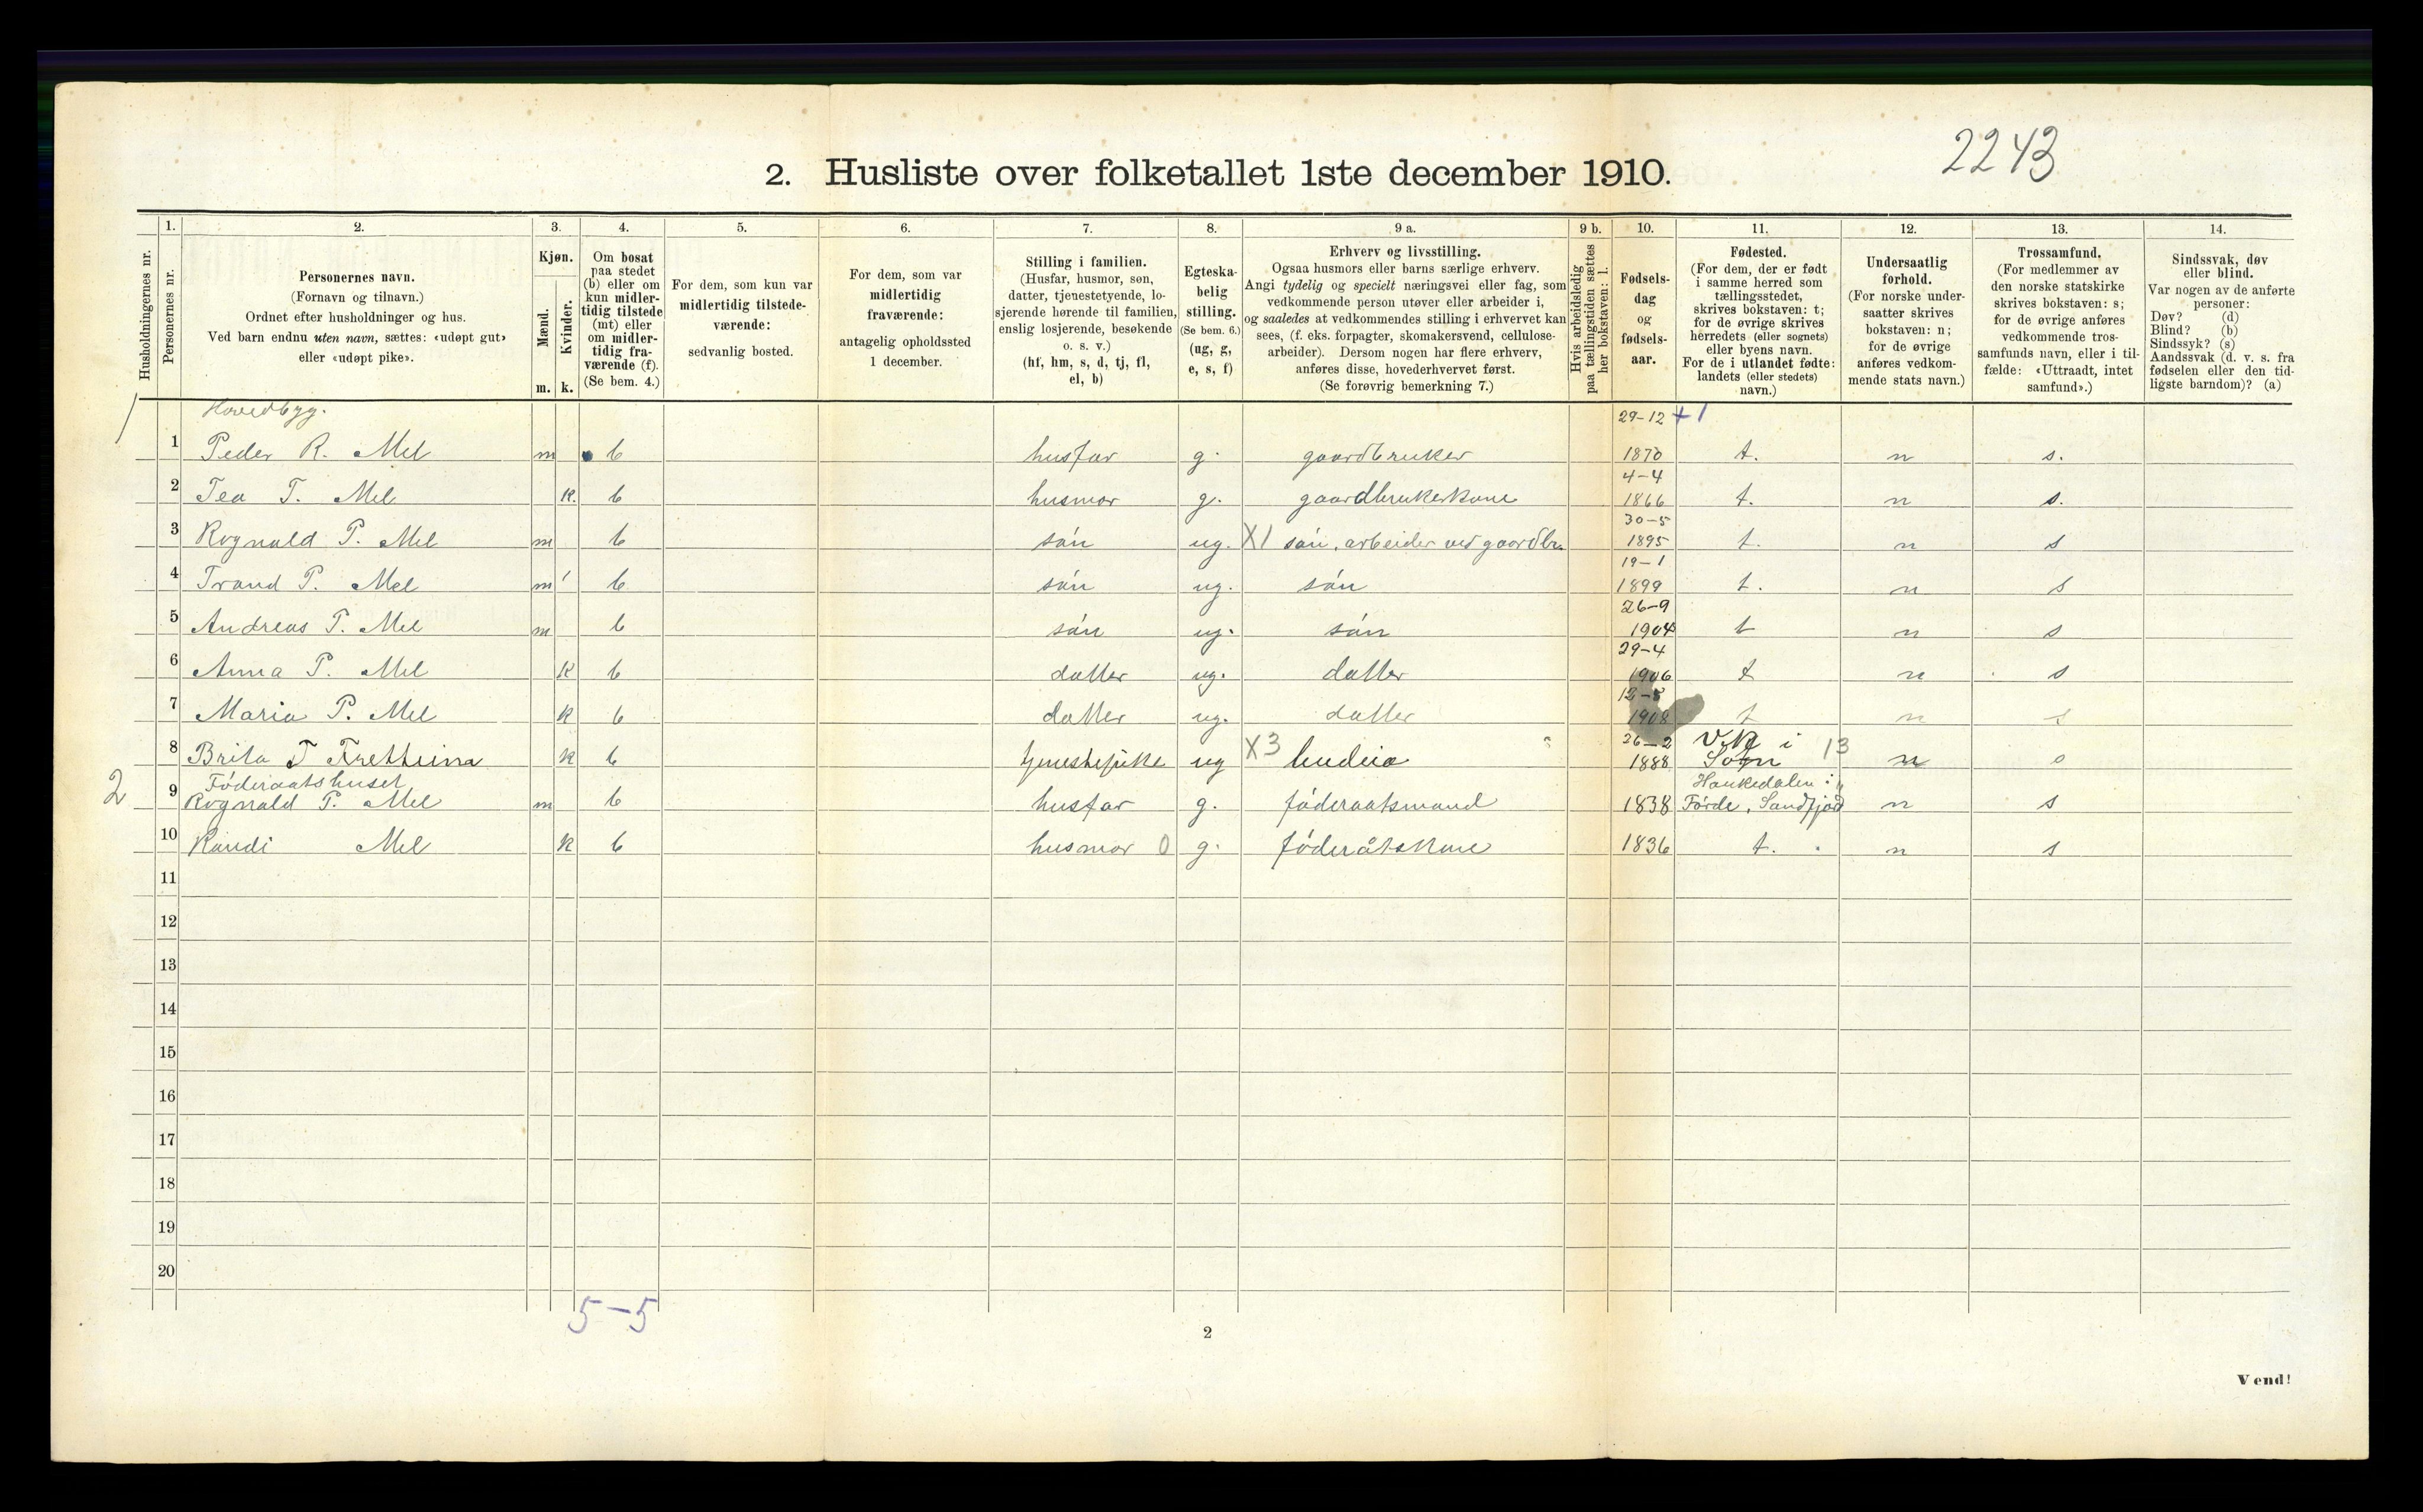 2243
2. Husliste over folketallet 1ste december 1910.
Husholdningernes nr.
1.
Personernes nr.
2.
Personernes navn.
(Fornavn og tilnavn.)
Ordnet efter husholdninger og hus.
Ved barn endnu uten navn, sættes: «udøpt gut»
eller «udøpt pike».
3.
Kjøn.
Mænd.
Kvinder.
m. k.
4.
Om bosat
paa stedet
(b) eller om
kun midler-
tidig tilstede
(mt) eller
om midler-
tidig fra-
værende (f).
(Se bem. 4.)
5.
For dem, som kun var
midlertidig tilstede-
værende:
sedvanlig bosted.
6.
For dem, som var
midlertidig
fraværende:
antagelig opholdssted
1 december.
7.
Stilling i familien.
(Husfar, husmor, søn,
datter, tjenestetyende, lo-
sjerende hørende til familien,
enslig losjerende, besøkende
o. s. v.)
(hf, hm, s, d, tj, fl,
el, b)
8.
Egteska-
belig
stilling.
(Se bem. 6.)
(ug, g,
e, s, f)
9 a.
Erhverv og livsstilling.
Ogsaa husmors eller barns særlige erhverv.
Angi tydelig og specielt næringsvei eller fag, som
vedkommende person utøver eller arbeider i,
og saaledes at vedkommendes stilling i erhvervet kan
sees, (f. eks. forpagter, skomakersvend, cellulose-
arbeider). Dersom nogen har flere erhverv,
anføres disse, hovederhvervet først.
(Se forøvrig bemerkning 7.)
9 b.
Hvis arbeidsledig
paa tællingstiden sættes
her bokstaven: l.
10.
Fødsels-
dag
og
fødsels-
aar.
11.
Fødested.
(For dem, der er født
i samme herred som
tællingsstedet,
skrives bokstaven: t;
for de øvrige skrives
herredets (eller sognets)
eller byens navn.
For de i utlandet fødte:
landets (eller stedets)
navn.)
12.
Undersaatlig
forhold.
(For norske under-
saatter skrives
bokstaven: n;
for de øvrige
anføres vedkom-
mende stats navn.)
13.
Trossamfund.
(For medlemmer av
den norske statskirke
skrives bokstaven: s;
for de øvrige anføres
vedkommende tros-
samfunds navn, eller i til-
fælde: «Uttraadt, intet
samfund».)
14.
Sindssvak, døv
eller blind.
Var nogen av de anførte
personer:
Døv? (d)
Blind? (b)
Sindssyk? (s)
Aandssvak (d. v. s. fra
fødselen eller den tid-
ligste barndom)? (a)
Hovedbyg. 29-12 +1
1 1 Peder R. Mel m b husfar g. gaardbruker 1870 t. n s.
4-4
2 Tea T. Mel k. b husmor g. gaardbrukerkone 1866 t. n s.
30-5
3 Rognald P. Mel m b søn ug. X1 søn, arbeider ved gaardbr. 1895 t. n s
19-1
4 Trond P. Mel m b søn ug. søn 1899 t. n s
26-9
5 Andreas P. Mel m b søn ug. søn 1904 t n s
29-4
6 Anna P. Mel k b datter ug. datter 1906 t n s
7 Maria P. Mel k b datter ug. datter 1908 t n s
26-2 Vik i 13
8 Brita T Fretheim k b tjenestepike ug X3 budeia 1888 Sogn n s
Føderaatshuset Haukedalen i
2 9 Rognald P. Mel m b husfar g. føderaatsmand 1838 Førde, Søndfjord n s
10 Randi Mel k b husmor 0 g. føderåtskone 1836 t. n s
11
12
13
14
15
16
17
18
19
20
5-5
2
Vend!